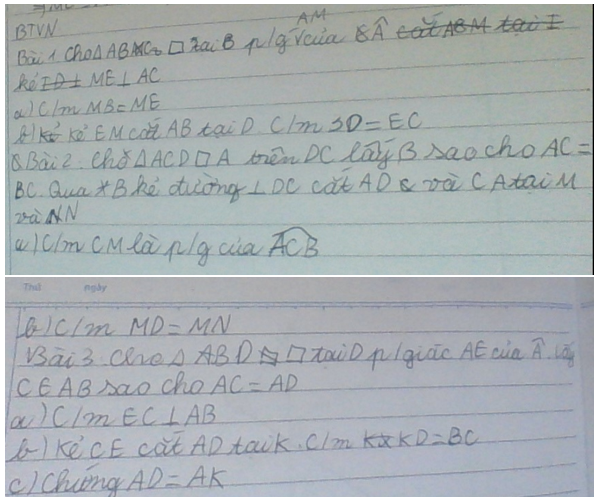 BTVN
Bài 1 Cho Δ ABC □ tại B p/g AM của Â cắt ABM tại I
kẻ ID ⊥ ME ⊥ AC
a) C/m MB = ME
b) kẻ kẻ EM cắt AB tại D. C/m BD = EC
Bài 2. Chở Δ ACD □ A trên DC lấy B sao cho AC =
BC. Qua B kẻ đường ⊥ DC cắt AD & và CA tại M
và N
a) C/m CM là p/g của ACB
Thứ ngày
b) C/m MD = MN
Bài 3. Cho Δ ABD □ tại D p/giác AE của Â. Lấy
C ∈ AB sao cho AC = AD
a) C/m EC ⊥ AB
b) Kẻ CE cắt AD tại K. C/m KD = BC
c) Chứng AD = AK